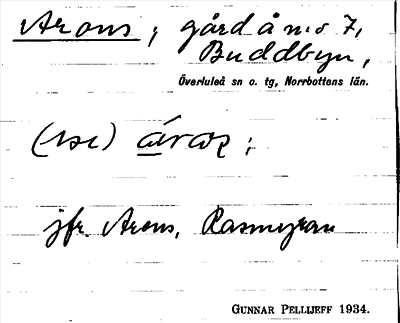 Arons; gård å n:o 7,
Buddbyn,
Överluleå sn o. tg, Norrbottens län.
(use) ;
jfr. Arons, Rasmyran
GUNNAR PELLIJEFF 1934.